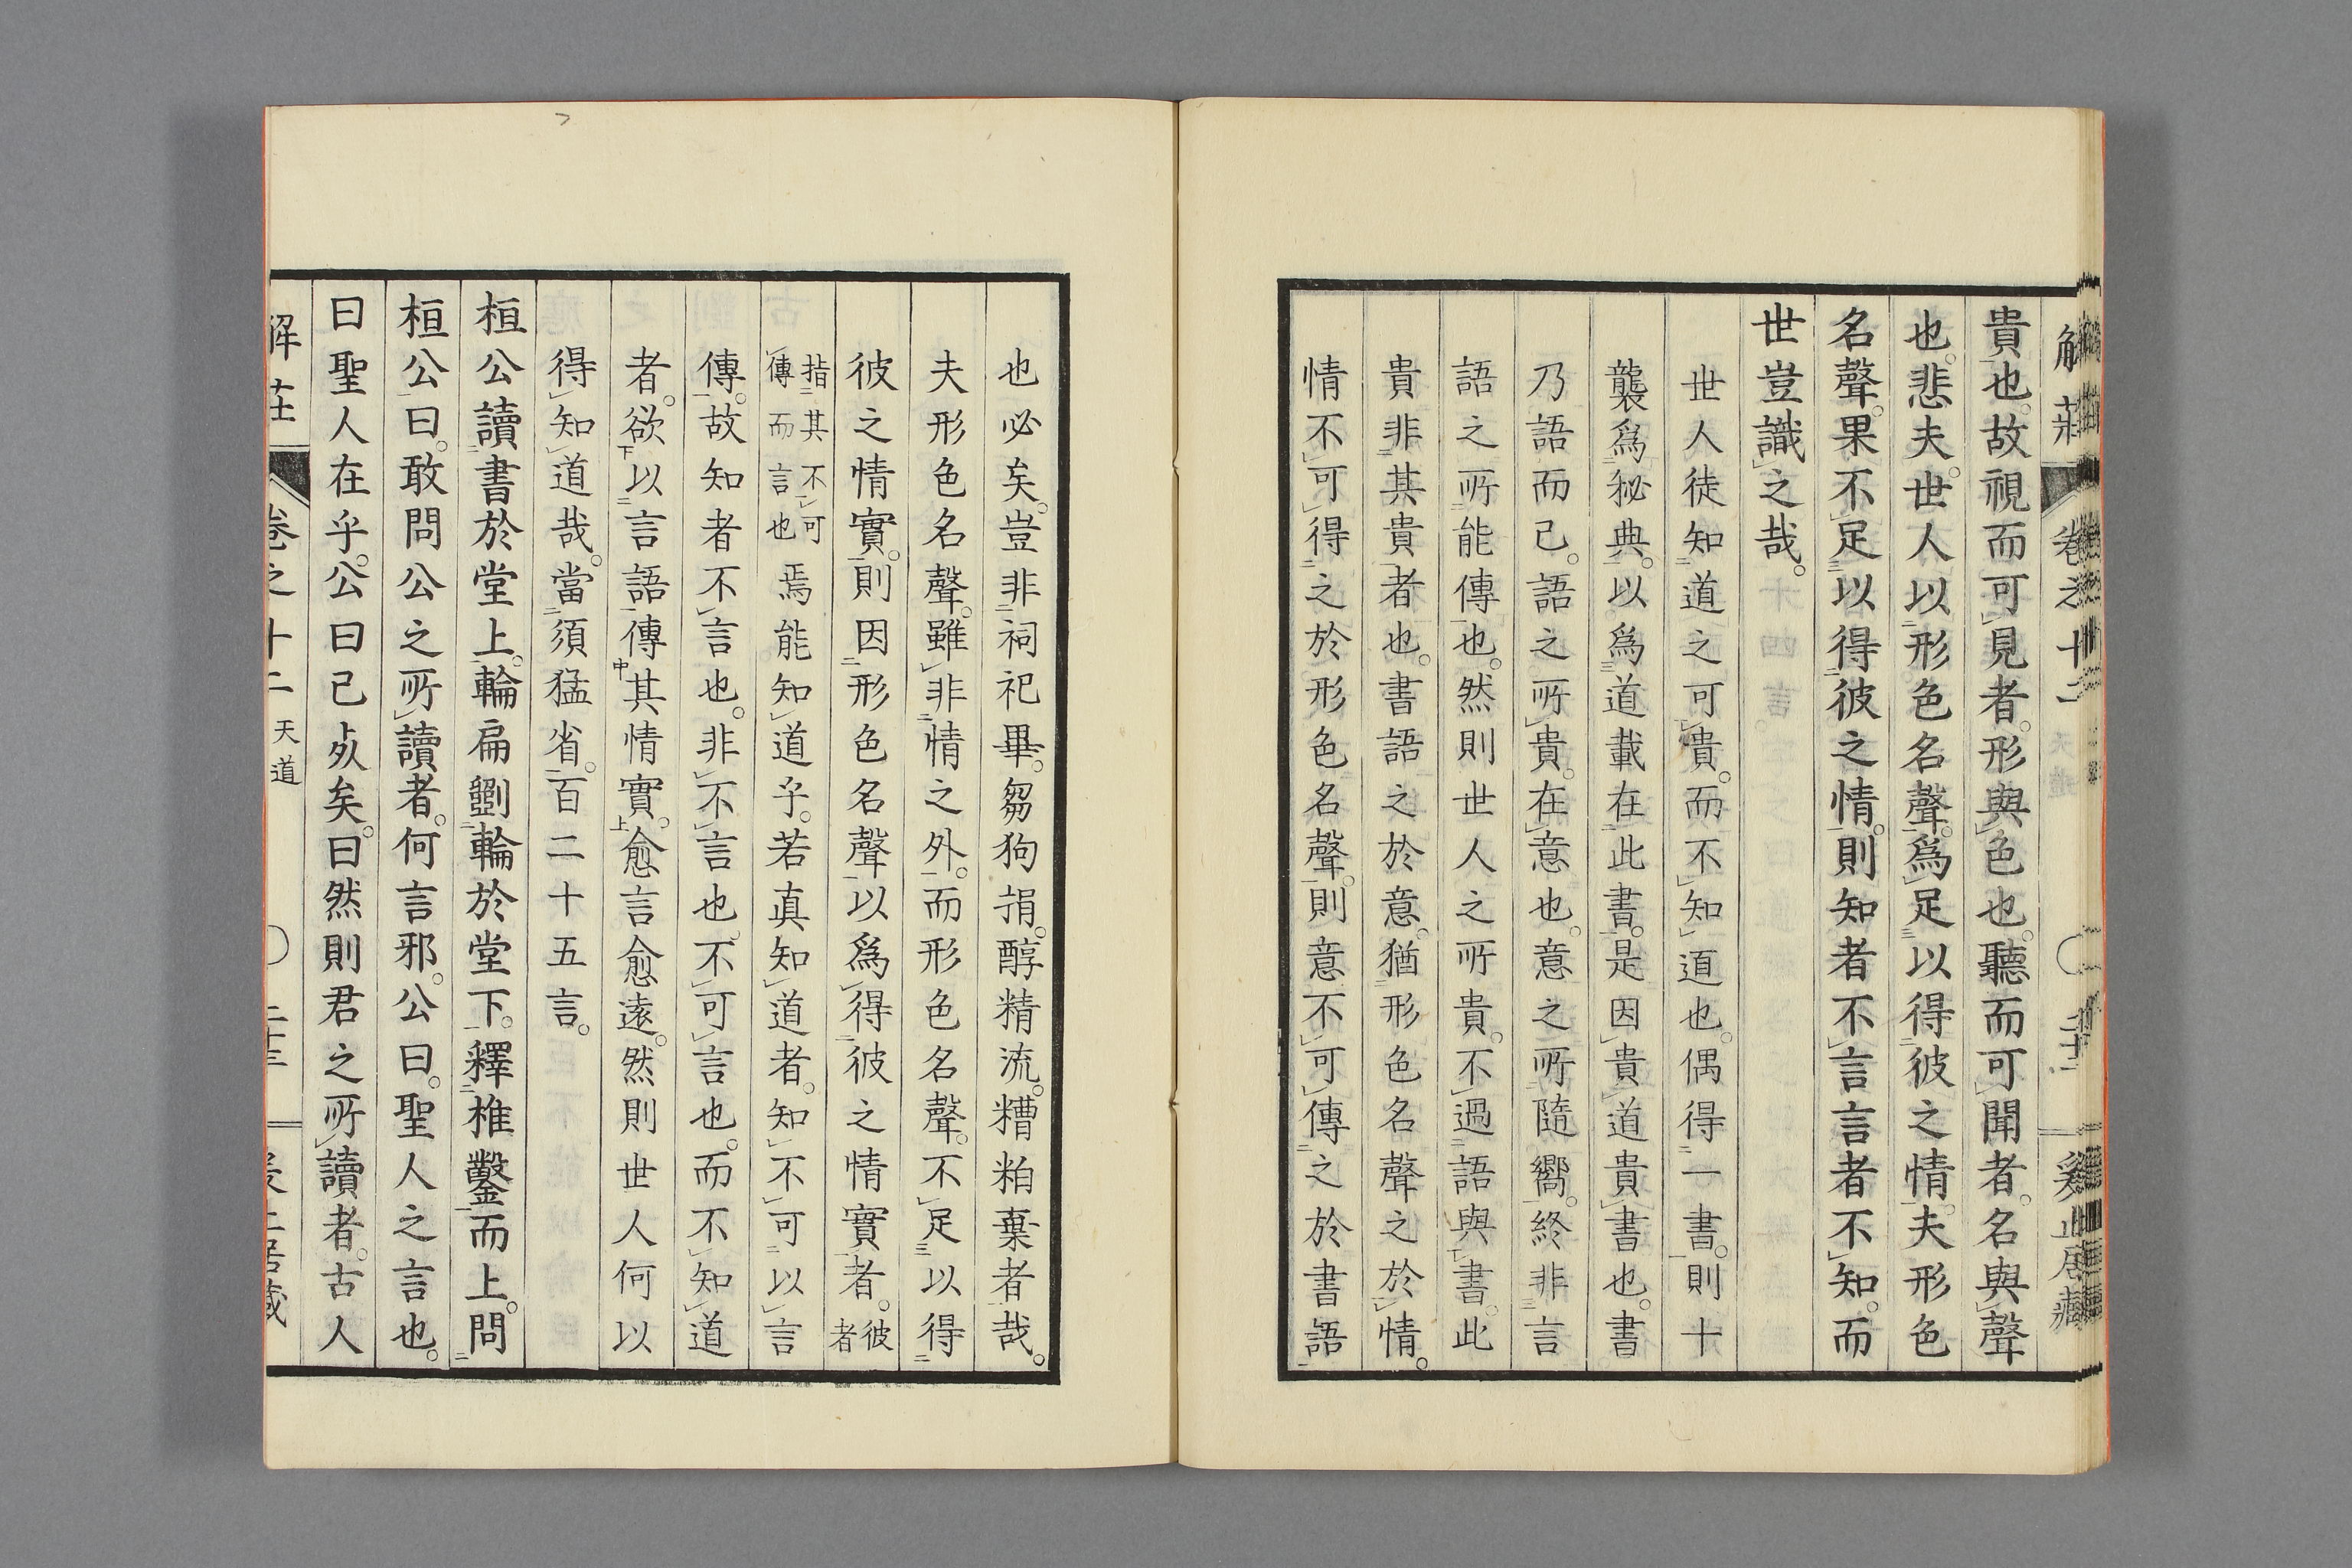 貴也。故視而可見者。形與色也。聽而可聞者。名與聲
也。悲夫。世人以形色名聲。爲足以得彼之情。夫形色
名聲。果不足以得彼之情。則知者不言言者不知。而
世豈識之哉。
世人徒知道之可貴。而不知道也。偶得一書。則十
襲爲秘典。以爲道載在此書。是因貴道貴書也。書
乃語而已。語之所貴。在意也。意之所隨嚮。終非言
語之所能傳也。然則世人之所貴。不過語與書。此
貴非其貴者也。書語之於意。猶形色名聲之於情。
情不可得之於形色名聲。則意不可傳之於書語
也必矣。豈非祠祀畢。芻狗捐。醇精流。糟粕棄者哉。
夫形色名聲。雖非情之外。而形色名聲。不足以得
彼之情實。則因形色名聲以爲得彼之情實者。彼者
指其不可傳而言也焉能知道乎。若真知道者。知不可以言
傳。故知者不言也。非不言也。不可言也。而不知道
者。欲以言語傳其情實。愈言愈遠。然則世人何以
得知道哉。當須猛省。百二十五言。
桓公讀書於堂上。輪扁斲輪於堂下。釋椎鑿而上。問
桓公曰。敢問公之所讀者。何言邪。公曰。聖人之言也。
曰聖人在乎。公曰已死矣。曰然則君之所讀者。古人
解莊 卷之十二 天道